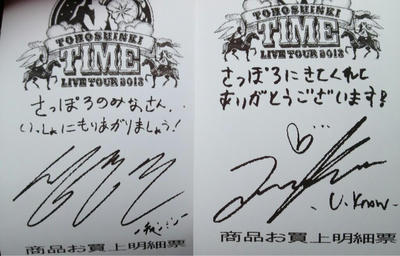 TOHOSHINKI
TIME
LIVE TOUR 2013
さっぽろのみなさん..
いっしょにもりあがりましょう!
商品お買上明細票
TOHOSHINKI
TIME
LIVE TOUR 2013
さっぽろにきてくれて
ありがとうございます!
- U-Know -
商品お買上明細票